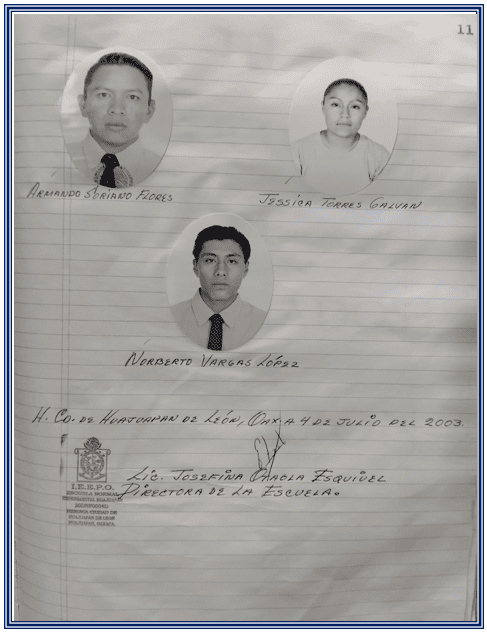 11
ARMANDO SORIANO FLORES
JESSICA TORRES GALVAN
NORBERTO VARGAS LÓPEZ
H. CD. DE HUAJUAPAN DE LEÓN, OAX. A 4 DE JULIO DEL 2003.
LIC. JOSEFINA ESQUIVEL
DIRECTORA DE LA ESCUELA.
I.E.E.P.O.
ESCUELA NORMAL
HUAJUAPAN DE LEON